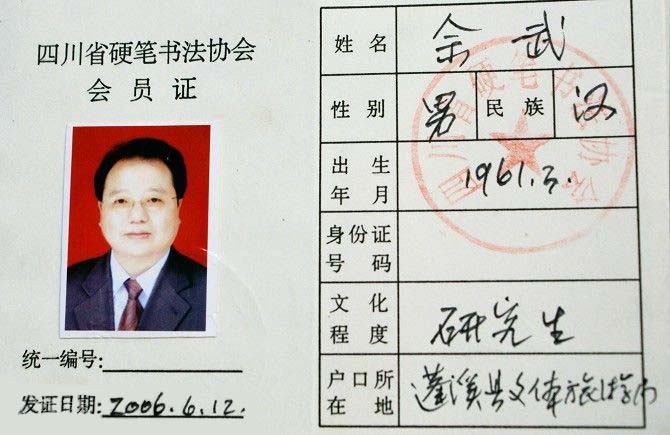 四川省硬笔书法协会
会员证
统一编号:
发证日期: 2006.6.12.
姓名 余武
性别 男 民族 汉
出生年月 1961.3.
身份证号码
文化程度 研究生
户口所在地 蓬溪县文体旅游局
四川省硬笔书法协会